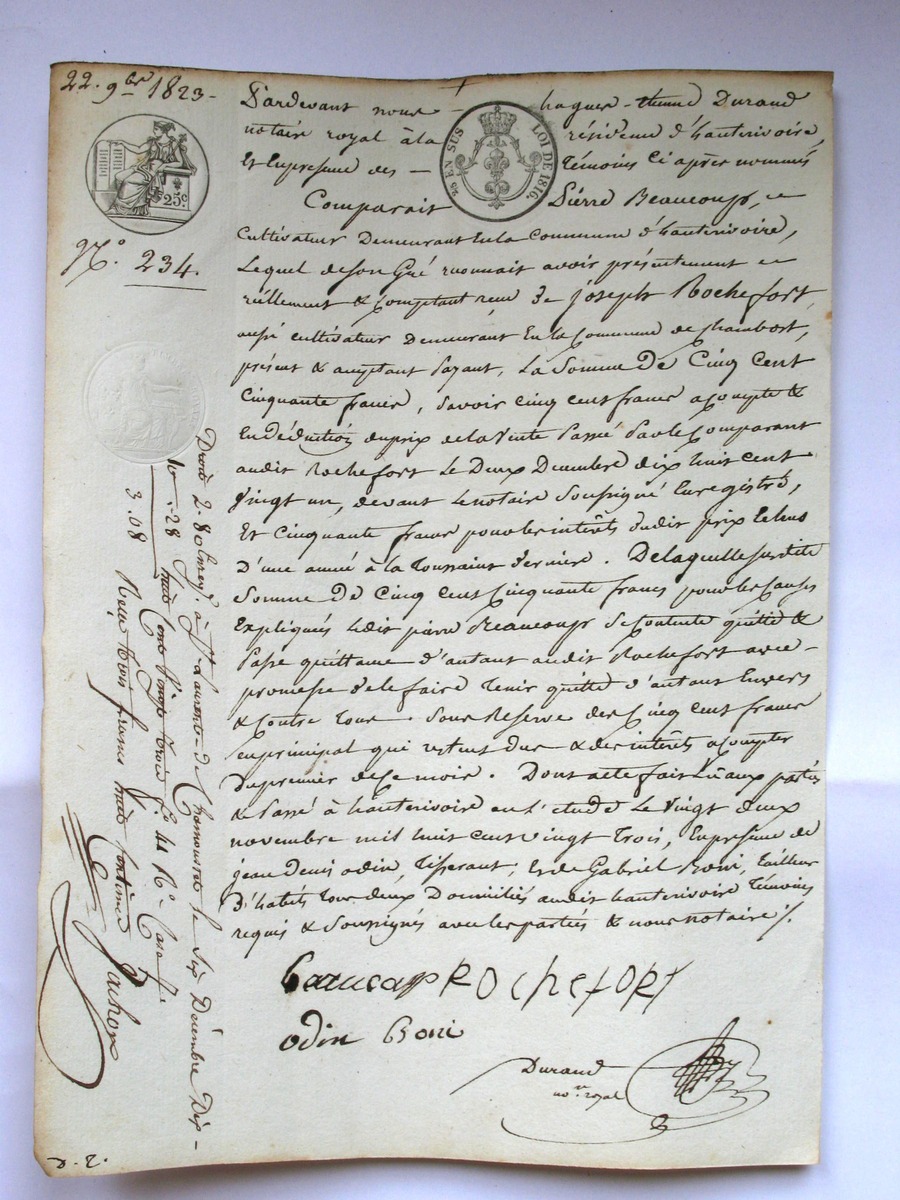 22. 9bre 1823-
Pardevant nous - Jaques-Etienne Durand
notaire royal à la résidence d'hauterivoire,
Et Enpresence des - Témoins ci après nommés
25c
20 EN SUS LOI DE 1816.
N.° 234.
Comparait Pierre Beaucoup, ce
Cultivateur Demeurant En la Commune d'hauterivoire,
Lequel de son Gré reconnait avoir présentement ce
réellement & Comptant reçu De joseph Rochefort,
aussi cultivateur Demeurant En la Commune de Chambost,
présent & acceptant Payant, La Somme De Cinq Cent
Cinquante francs, Savoir cinq cent francs acompte &
En déduction du prix de la Vente Passé Par le Comparant
audit Rochefort Le Deux Decembre dix huit cent
Vingt un, devant le notaire Soussigné Enregistré,
Et Cinquante francs pour les intérêts dudit prix Echus
D'une année à la Toussaint Derniere. De laquelle Susdite
Somme De Cinq Cent Cinquante francs pour les Causes
Expliqués Ledit pierre Beaucoup Se Contente quitte &
Passe quittance d'autant audit Rochefort avec
promesse de le faire Tenir quitte d'autant Envers
& Contre Tous. Sous Réserve des Cinq Cent francs
en principal qui restent Dus & des intérêts acompter
Du premier de Ce mois. Dont acte fait Lû aux parties
& Passé à hauterivoire en l'etude Le Vingt deux
novembre mil huit cent vingt Trois, En presence de
jean Denis odin, Tisserant, Et de Gabriel Boni, Tailleur
D'habits Tous deux Domiciliés audit hauterivoire Témoins
requis & Soussignés avec les parties & nous notaire ./.
beaucoup ROCHEFORT
odin Boni
Durand
nore royal
Enregé. à St Laurent-de Chamousset le Six Décembre Dix-
huit Cent Vingt Trois f.° 44 R.° Case
Reçu Trois francs huit Centimes
Droit 2.80
10 .-28
3.08